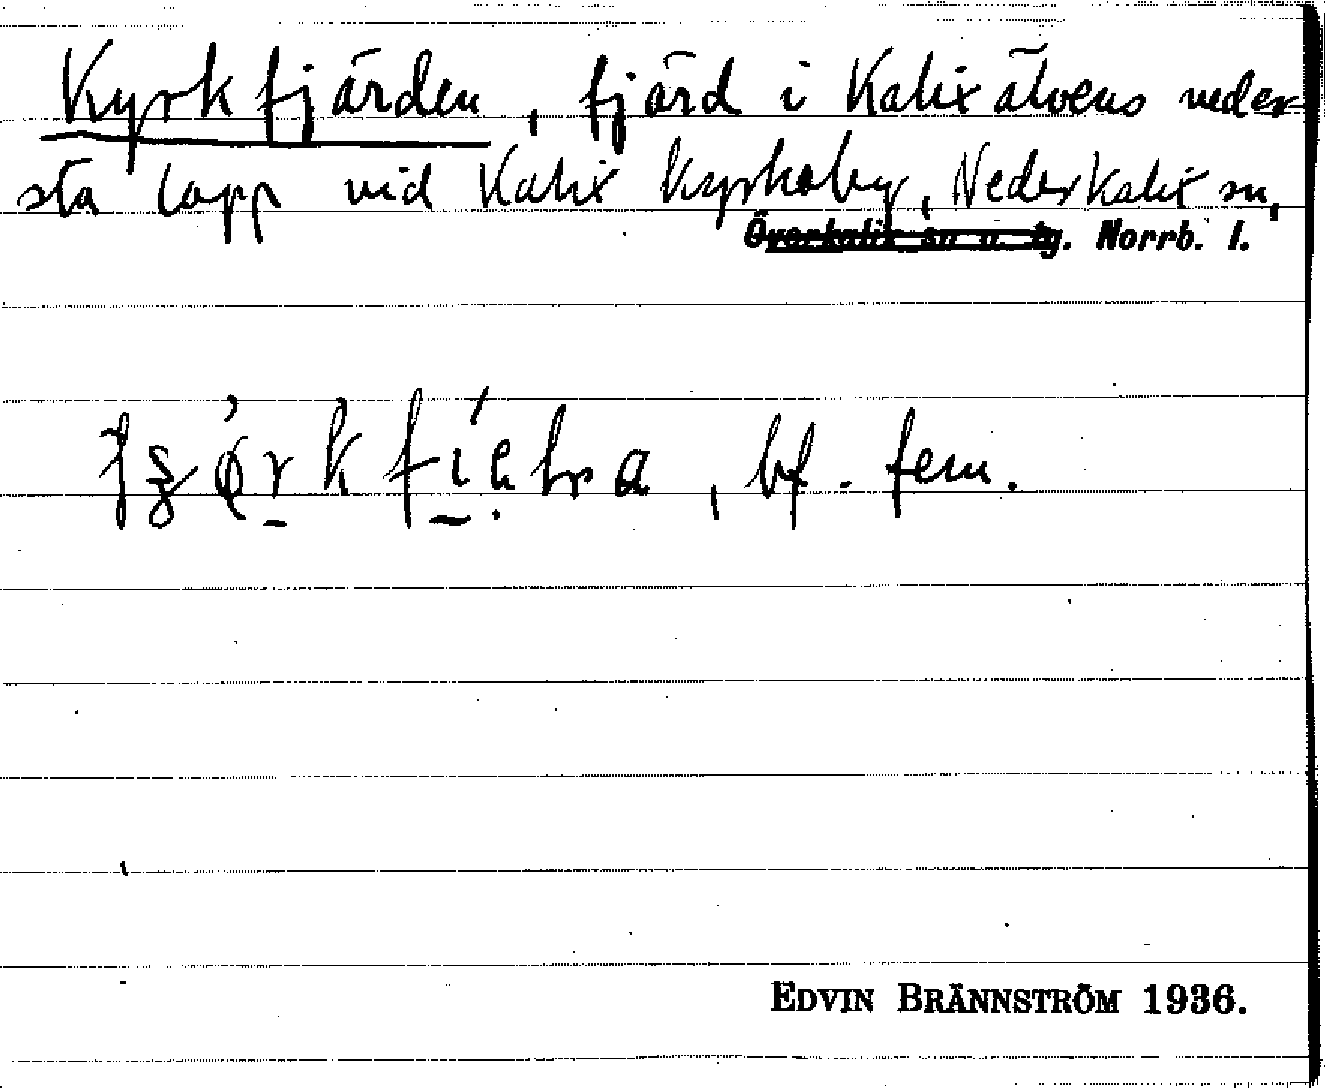 Kyrkfjärden, fjärd i Kalixälvens neder-
sta lopp vid Kalix kyrkoby, Nederkalix sn,
Överkalix sn o. tg. Norrb. l.
bf. fem.
EDVIN BRÄNNSTRÖM 1936.